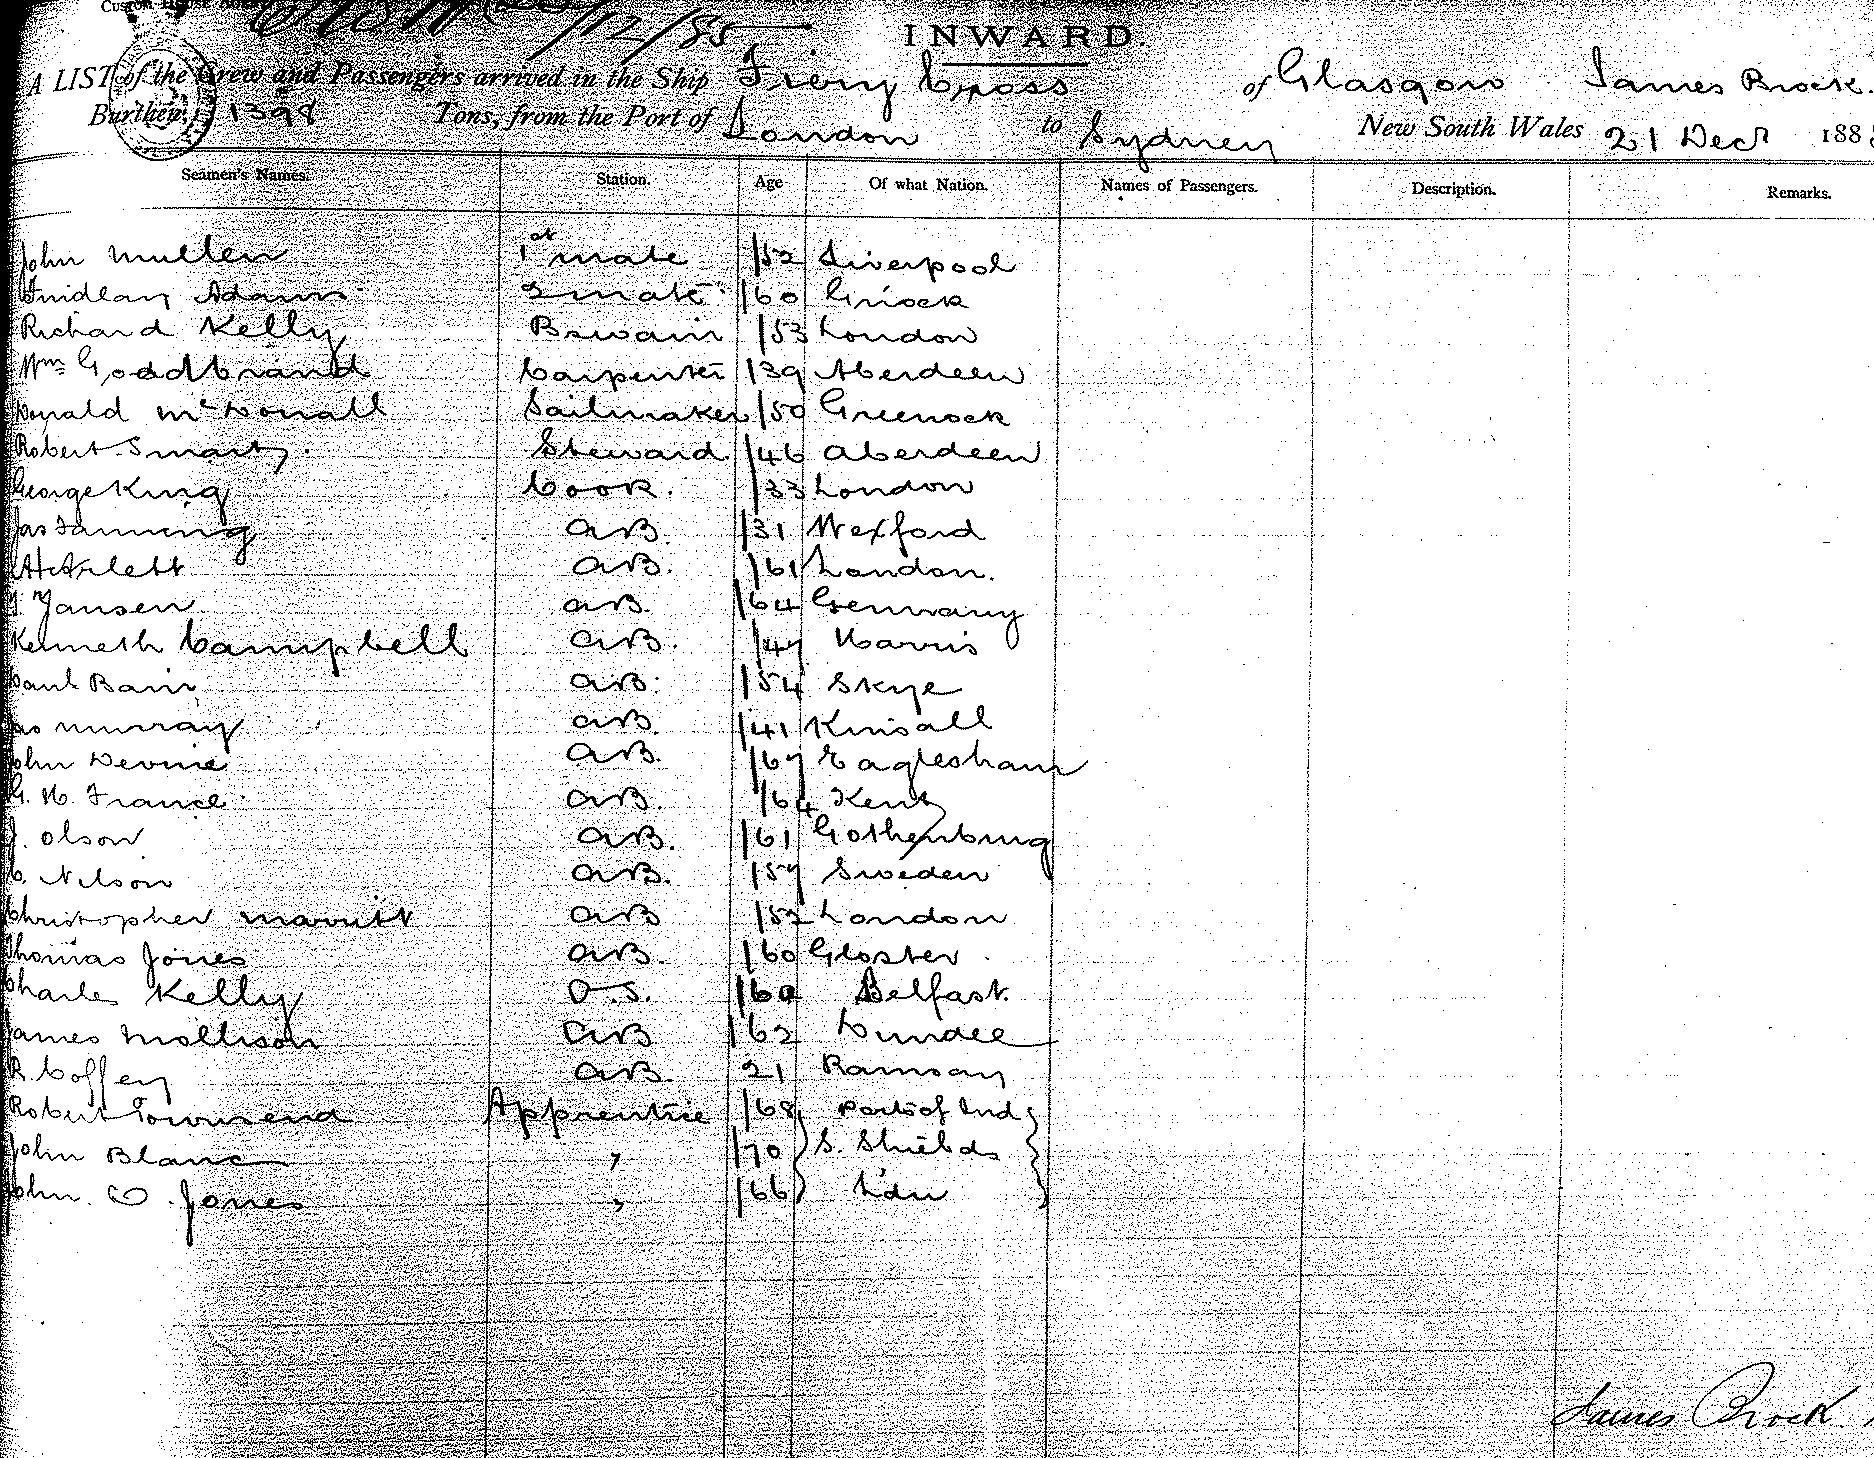 Custom House
/12/85
INWARD.
A LIST of the Crew and Passengers arrived in the Ship Fiery Cross of Glasgow James Brock.
Burthen, 1398 Tons, from the Port of London to Sydney New South Wales 21 Decr 188
Seamen's Names. Station. Age Of what Nation. Names of Passengers. Description. Remarks.
John Mullen 1st mate /52 Liverpool
Adams 2 mate /60 Griock
Richard Kelly Bswain /53 London
Wm Goodbrand Carpenter /39 Aberdeen
Donald McDonall Sailmaker /50 Greenock
Robert Smart Steward /46 Aberdeen
George King Cook. /33 London
Jas Fanning AB. /31 Wexford
Arlett AB. /61 London.
J. Jansen AB. /64 Germany
Kenneth Campbell AB. /47 Harris
Bain AB. /54 Skye
Jas Murray AB. /41 Kinsall
John Devine AB. /67 Eaglesham
G. H. France AB. /64 Kent
J. Olson AB. /61 Gothenburg
C. Nelson AB. /57 Sweden
Christopher Marritt AB /52 London
Thomas Jones AB. /60 Gloster
Charles Kelly O.S. /60 Belfast.
James Mollison AB /62 Dundee
R. Coffey AB. 21 Ramsay
Robert Townsend Apprentice /68 Ports of Ind
John Blanc " /70 S. Shields
John O. Jones " /66 Ldn
James Brock